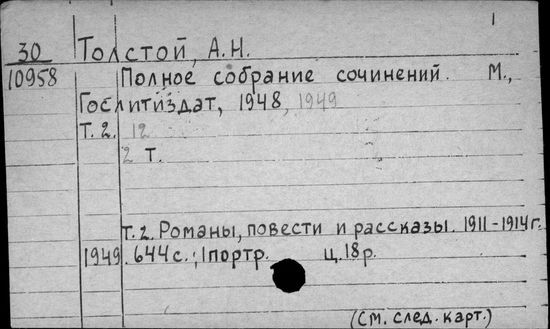 1
30 Толстой, А.Н.
10958 Полное собрание сочинений. М.,
Гослитиздат, 1948, 1949
Т. 2. 12
2 т.
Т. 2. Романы, повести и рассказы. 1911-1914г.
1949. 644с.; 1портр. ц. 18р.
(См. след. карт.)